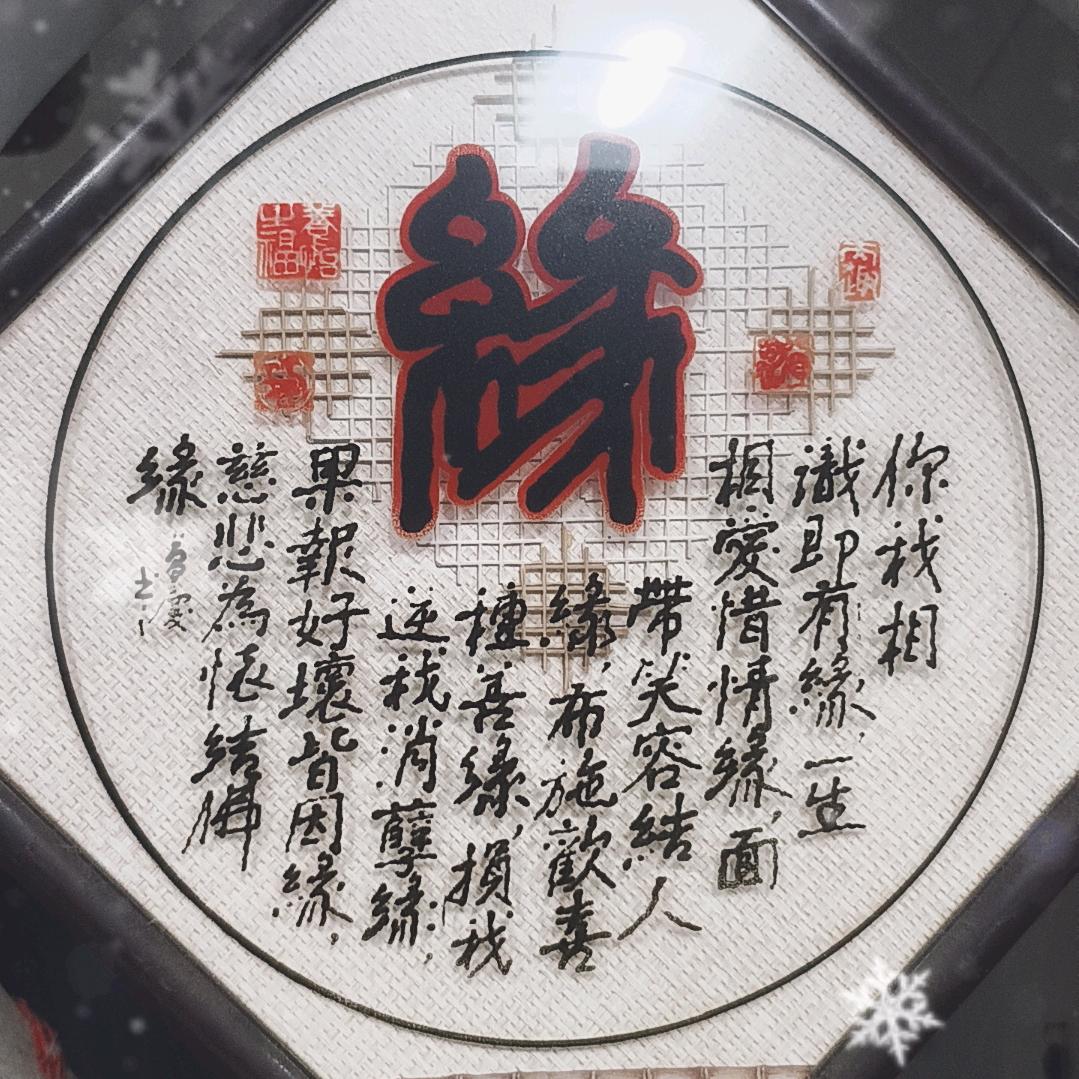 緣
你我相
識即有緣，一生
相愛惜情緣，面
帶笑容結人
緣，布施歡喜
種善緣，損我
逆我消孽緣，
果報好壞皆因緣，
慈悲為懷結佛
緣